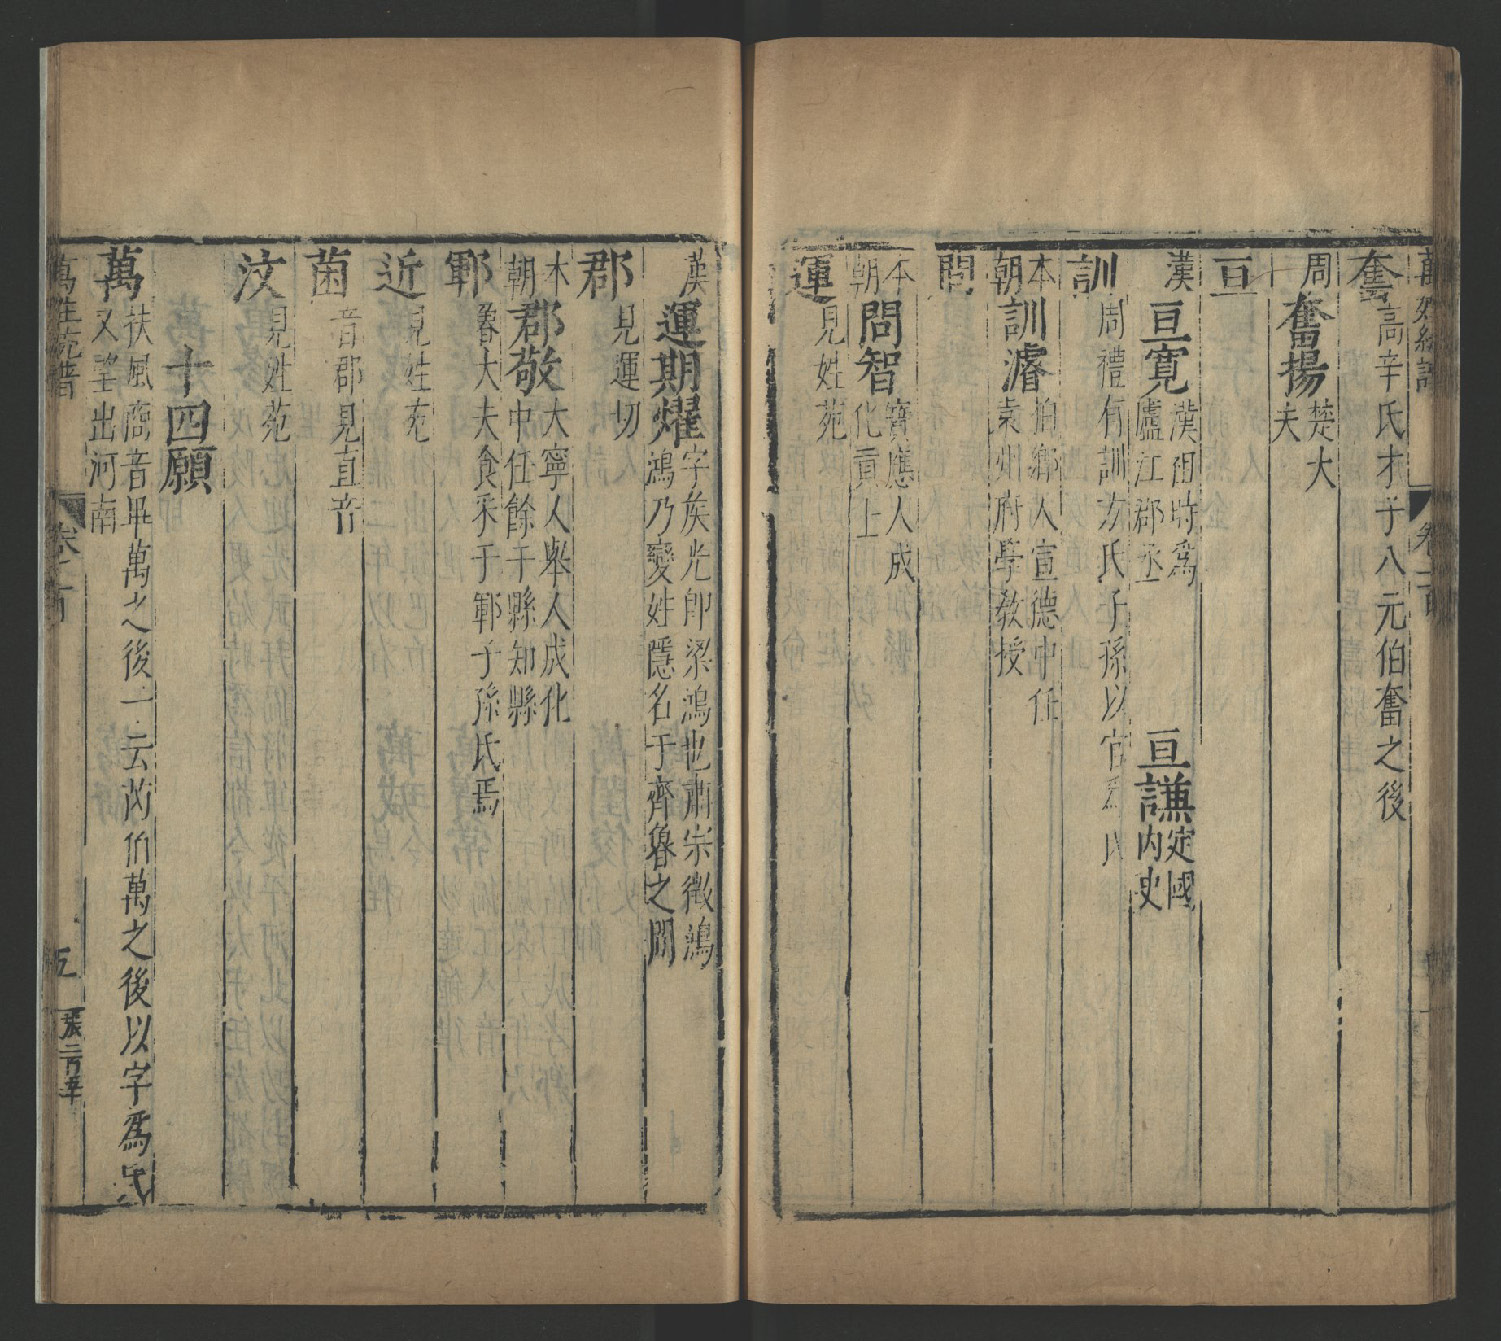 萬姓統譜 卷一百
奮 高辛氏才子八元伯奮之後
周 奮揚 楚大夫
亘
漢 亘寛 漢和時爲廬江郡丞 亘謙 定國內史
訓 周禮有訓方氏子孫以官爲氏
本朝 訓濬 伯鄉人宣德中任袁州府學教授
問
本朝 問智 寳應人成化貢士
運 見姓苑
漢 運期燿 字矦光即梁鴻也肅宗徵鴻鴻乃變姓隱名于齊魯之間
郡 見運切
本朝 郡敬 大寧人舉人成化中任餘干縣知縣
鄆 魯大夫食采于鄆子孫氏焉
近 見姓苑
菌 音郡見直音
汶 見姓苑
十四願
萬 扶風商音畢萬之後一云芮伯萬之後以字爲氏又望出河南
萬姓統譜 卷一百 五